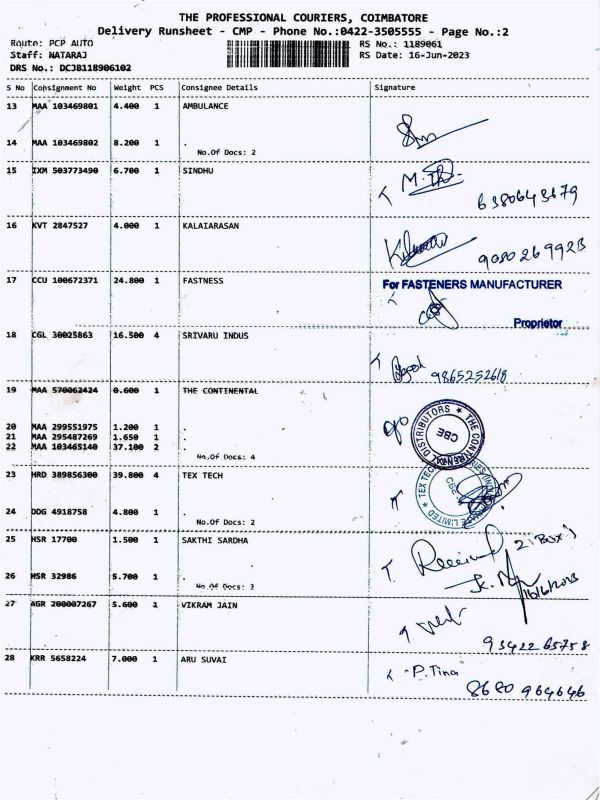 THE PROFESSIONAL COURIERS, COIMBATORE
Delivery Runsheet - CMP - Phone No.:0422-3505555 - Page No.:2
Route: PCP AUTO
RS No.: 1189061
Staff: NATARAJ
RS Date: 16-Jun-2023
DRS No.: DCJB118906102
S No Consignment No Weight PCS Consignee Details Signature
13 MAA 103469801 4.400 1 AMBULANCE
14 MAA 103469802 8.200 1 .
No.Of Docs: 2
15 IXM 503773490 6.700 1 SINDHU
6380643679
16 KVT 2847527 4.000 1 KALAIARASAN
9080269923
17 CCU 100672371 24.800 1 FASTNESS
For FASTENERS MANUFACTURER
Proprietor
18 CGL 30025863 16.500 4 SRIVARU INDUS
9865252618
19 MAA 570062424 0.600 1 THE CONTINENTAL
20 MAA 299551975 1.200 1 .
21 MAA 295487269 1.650 1 .
22 MAA 103465140 37.100 2 .
No.Of Docs: 4
THE CONTINENTAL DISTRIBUTORS ★
CBE
23 HRD 389856300 39.800 4 TEX TECH
24 DDG 4918758 4.800 1 .
No.Of Docs: 2
25 HSR 17700 1.500 1 SAKTHI SARDHA
Received 2 Box
26 HSR 32986 5.700 1 .
No.Of Docs: 2
16/6/2023
27 AGR 200007267 5.600 1 VIKRAM JAIN
9342265758
28 KRR 5658224 7.000 1 ARU SUVAI
P.Tina
8680964646